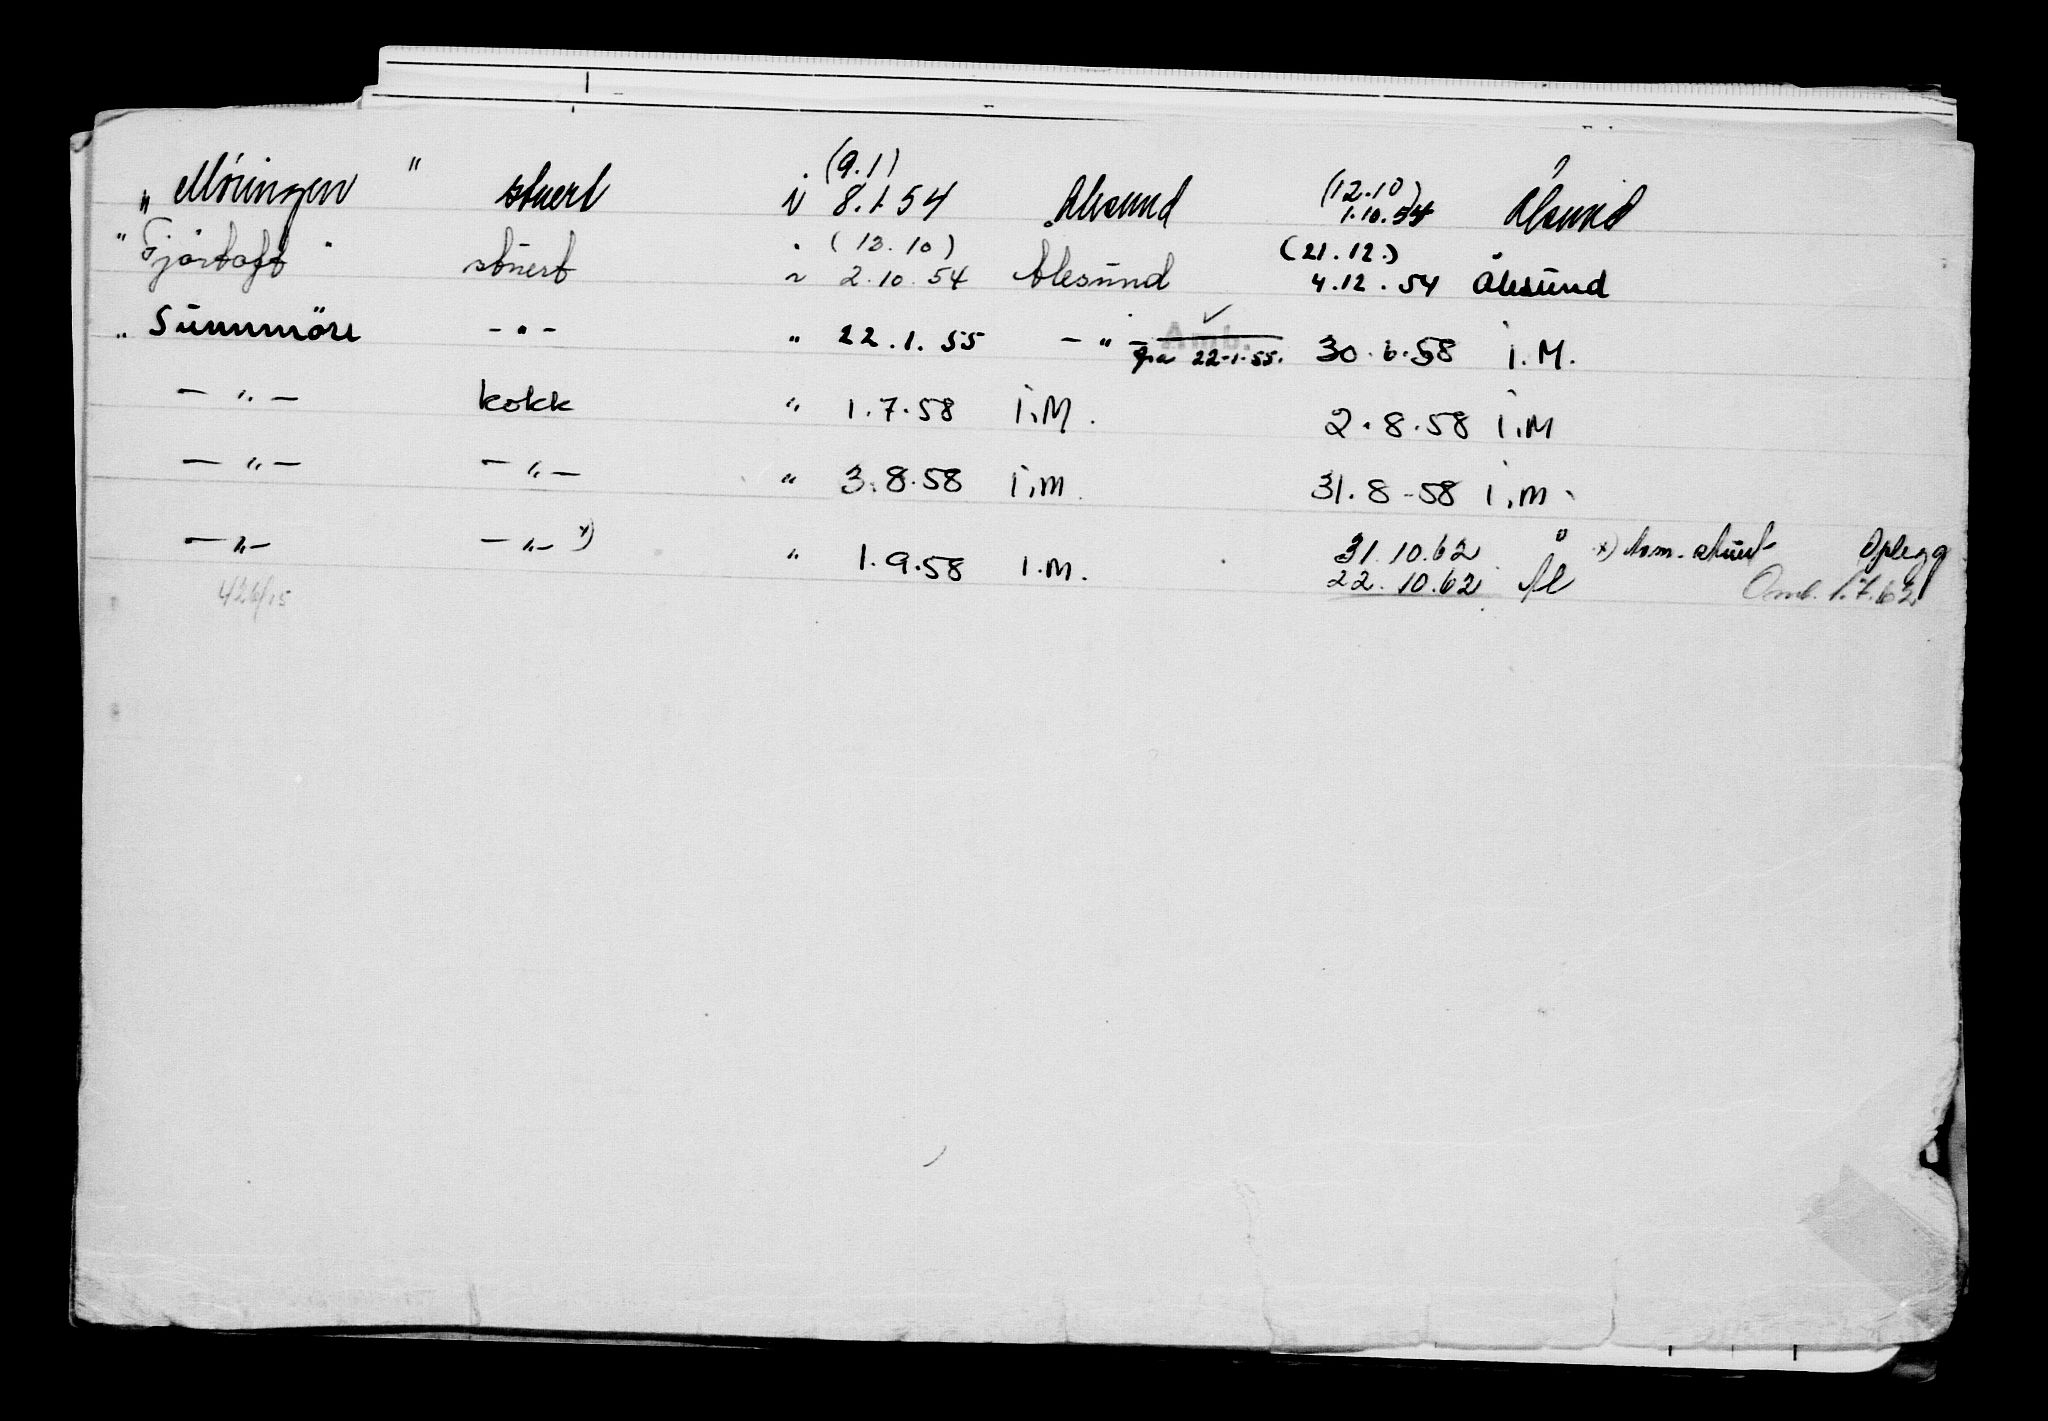 (9.1) (12.10)
„ Möringen " stuert i 8.1.54 Ålesund 1.10.54 Ålesund
(13.10) (21.12.)
" Fjörtoft " stuert " 2.10.54 Ålesund 4.12.54 Ålesund
" Sunnmöre - " - " 22.1.55 - " - Amb. fra 22-1-55. 30.6.58 i.M.
- " - kokk " 1.7.58 i.M. 2.8.58 i.M
- " - - " - " 3.8.58 i.m. 31.8-58 i.m.
- " - - " - x) " 1.9.58 i.M. 31.10.62 " x) kom. stuert Oplegg
426/15 22.10.62 Ål Omb. 1.7.62